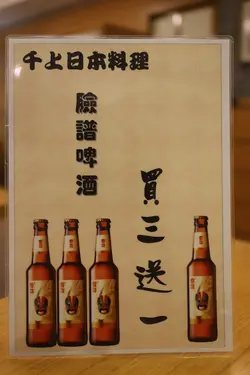 千上日本料理
臉譜啤酒
買三送一